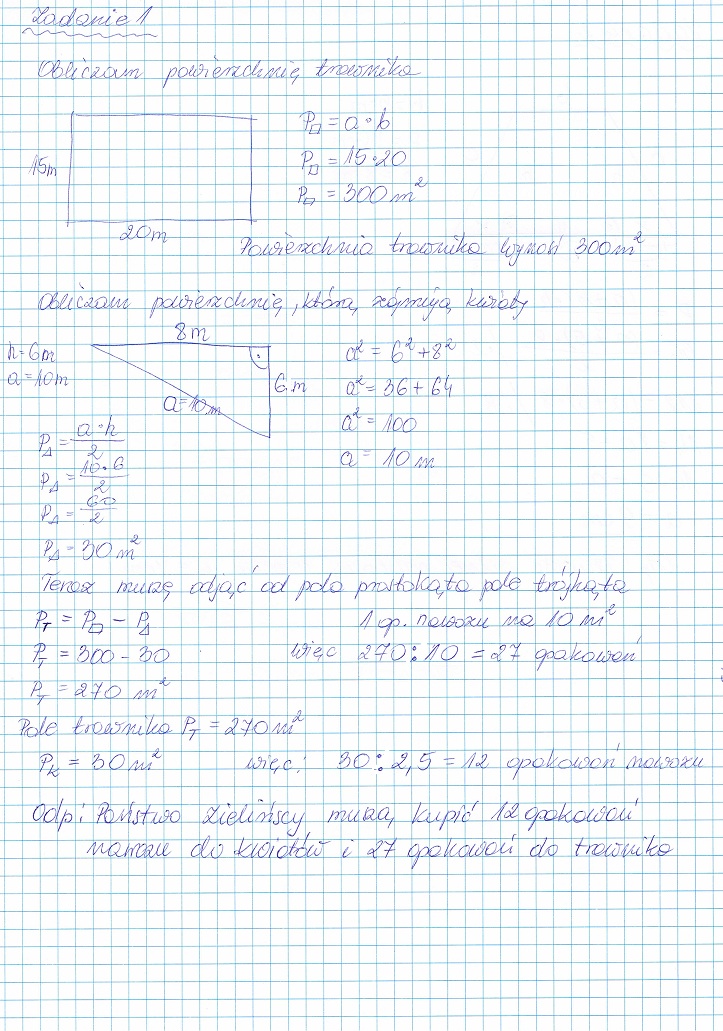 Zadanie 1
Obliczam powierzchnię trawnika
15m
20m
P□ = a · b
P□ = 15 · 20
P□ = 300 m²
Powierzchnia trawnika wynosi 300m²
Obliczam powierzchnię, którą zajmują kwiaty
8m
h = 6m
a = 10m
6 m
a = 10m
a² = 6² + 8²
a² = 36 + 64
a² = 100
a = 10 m
P△ = a · h / 2
P△ = 10 · 6 / 2
P△ = 60 / 2
P△ = 30 m²
Teraz muszę odjąć od pola prostokąta pole trójkąta
P_T = P□ − P△
1 op. nawozu na 10 m²
P_T = 300 − 30
więc 270 : 10 = 27 opakowań
P_T = 270 m²
Pole trawnika P_T = 270 m²
P_k = 30 m² więc: 30 : 2,5 = 12 opakowań nawozu
Odp: Państwo Zielińscy muszą kupić 12 opakowań
nawozu do kwiatów i 27 opakowań do trawnika